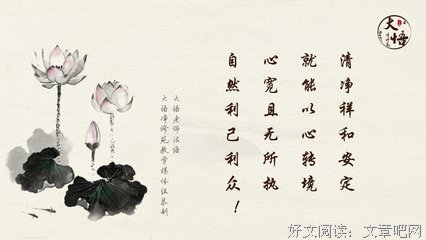 大悟
清净祥和安定
就能以心转境
心宽且无所执
自然利己利众！
大悟老师法语
大悟净修苑教学媒体组恭制
好文阅读：文章吧网